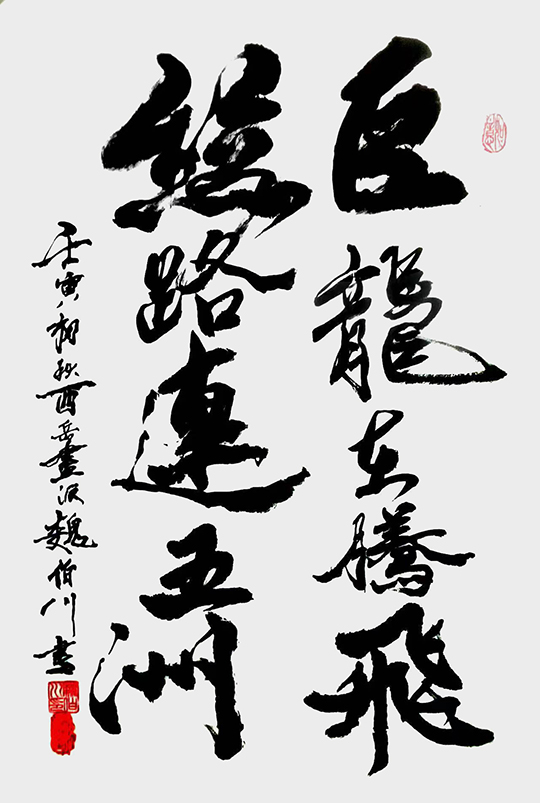 巨龍在騰飛
絲路連五洲
壬寅初秋西岳畫派魏伯川書